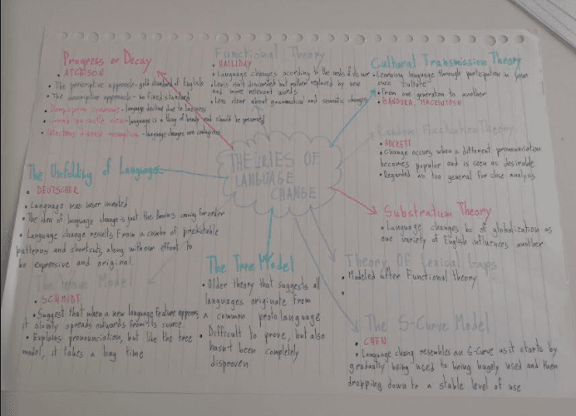 Progress or Decay
• AITCHISON
• The prescriptive approach - gold standard of English
• The descriptive approach - no fixed standard
language decline due to laziness
language is a thing of beauty and should be preserved
Infectious disease assumption - language changes are contagious
Functional Theory
• HALLIDAY
• Language changes according to the needs of its user
• Lexis isn't discarded but rather replaced by new
and more relevant words
• Less clear about grammatical and semantic changes
Cultural Transmission Theory
• Learning language through participation in your
own culture
• From one generation to another
• BANDURA,
Random Fluctuation Theory
• HOCKETT
• Change occurs when a different pronunciation
becomes popular and is seen as desirable
• Regarded as too general for close analysis
THEORIES OF
LANGUAGE
CHANGE
The Unfolding of Language
• DEUTSCHER
• Language was never invented
• The idea of language change is just the brains craving for order
• Language change results from a create of predictable
patterns and shortcuts, along with our effort to
be expressive and original
Substratum Theory
• Language changes bc of globalization as
one variety of English influences another
Theory Of Lexical Gaps
• Modeled after Functional Theory
•
The Wave Model
• SCHMIDT
• Suggest that when a new language feature appears,
it slowly spreads outwards from its source
• Explains pronunciation, but like the tree
model, it takes a long time
The Tree Model
• Older theory that suggests all
languages originate from
a common proto language
• Difficult to prove, but also
hasn't been completely
disproven
The S-Curve Model
• CHEN
• Language change resembles an S-Curve as it starts by
gradually being used to being hugely used and then
dropping down to a stable level of use